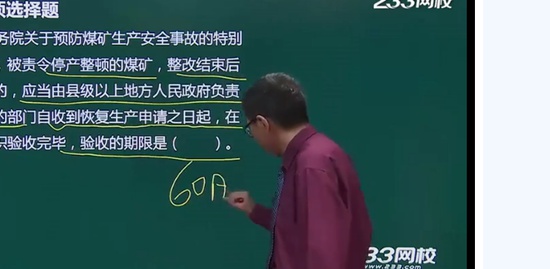 项选择题
233网校
务院关于预防煤矿生产安全事故的特别
，被责令停产整顿的煤矿，整改结束后
的，应当由县级以上地方人民政府负责
的部门自收到恢复生产申请之日起，在
织验收完毕，验收的期限是（ ）。
60
33网校
www.233.com